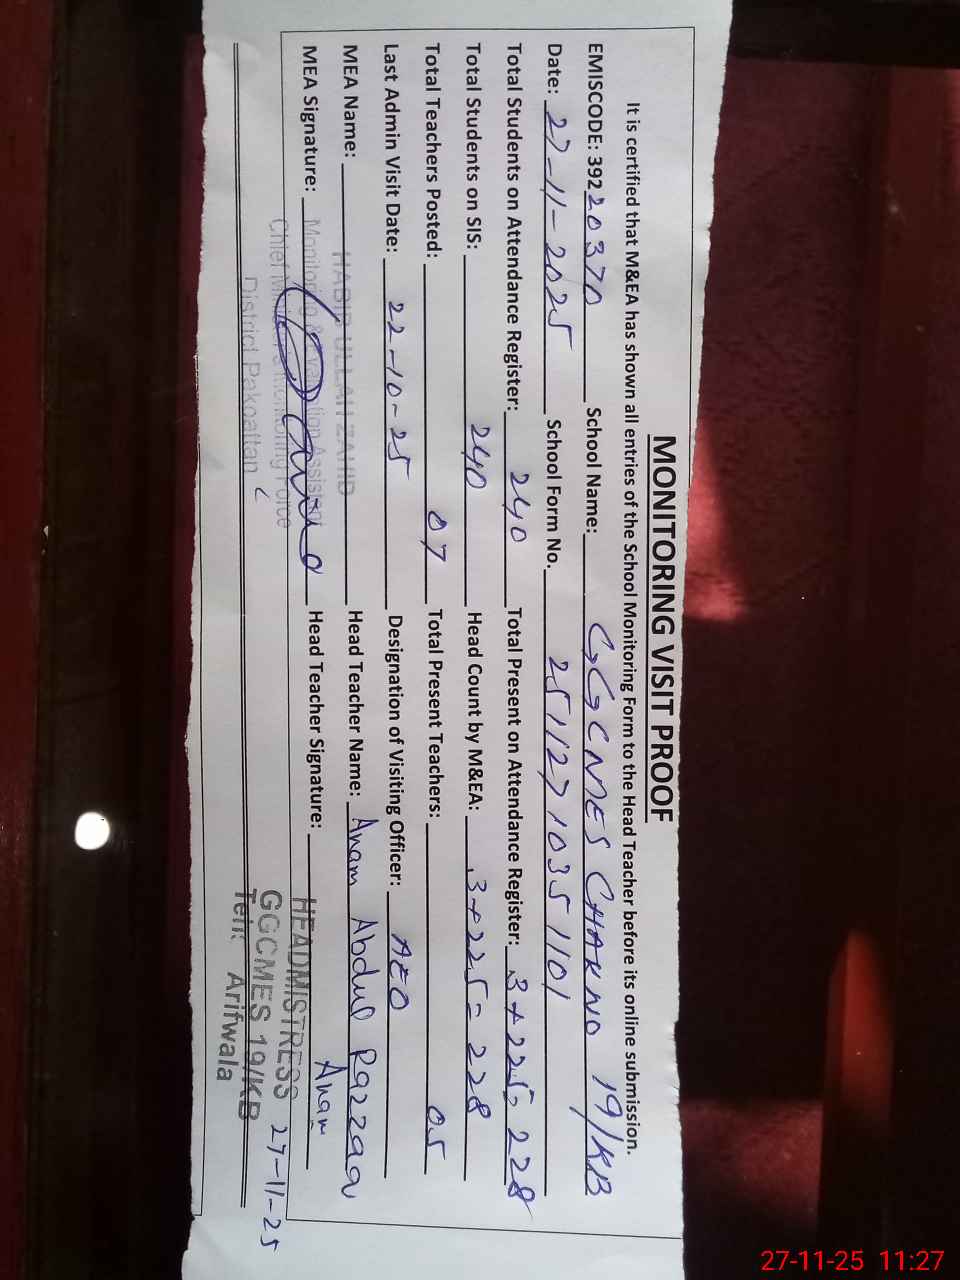 MONITORING VISIT PROOF
It is certified that M&EA has shown all entries of the School Monitoring Form to the Head Teacher before its online submission.
EMISCODE: 39220370 School Name: GGCMES CHAK NO 19/KB
Date: 27-11-2025 School Form No. 25112710351101
Total Students on Attendance Register: 240 Total Present on Attendance Register: 3+225= 228
Total Students on SIS: 240 Head Count by M&EA: 3+225= 228
Total Teachers Posted: 07 Total Present Teachers: 05
Last Admin Visit Date: 22-10-25 Designation of Visiting Officer: AEO
MEA Name: HABIB ULLAH ZAHID Head Teacher Name: Anam Abdul Razzaq
MEA Signature: Head Teacher Signature: Anam
Monitoring & Evaluation Assistant
Chief Minister's Monitoring Force
District Pakpattan
HEADMISTRESS 27-11-25
GGCMES 19/KB
Teh: Arifwala
27-11-25 11:27